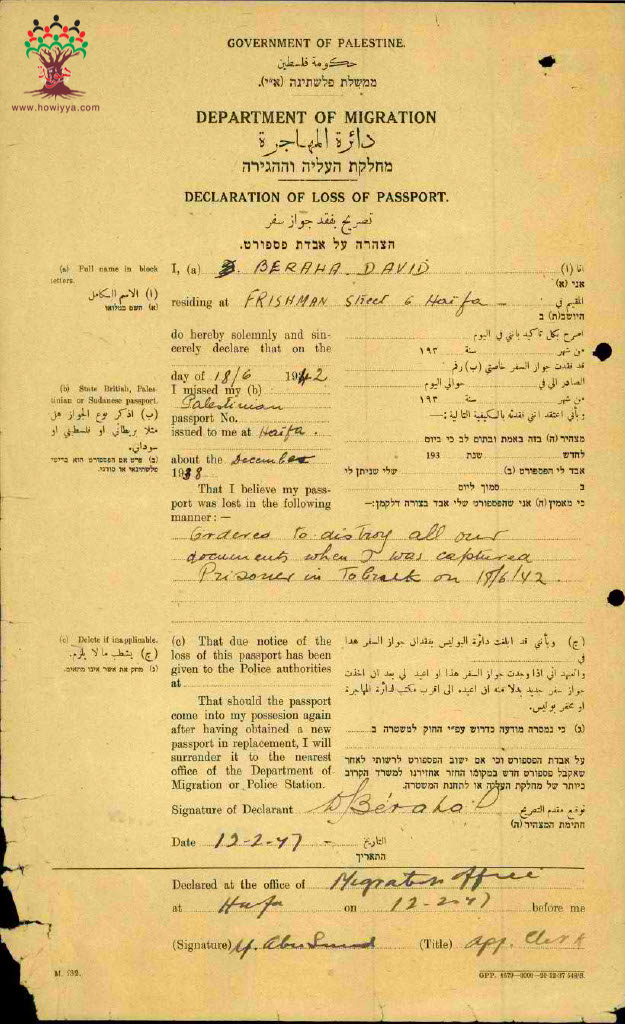 www.howiyya.com
GOVERNMENT OF PALESTINE.
حكومة فلسطين
ממשלת פלשתינה (א״י).
DEPARTMENT OF MIGRATION
دائرة المهاجرة
מחלקת העליה וההגירה
DECLARATION OF LOSS OF PASSPORT.
تصريح بفقد جواز سفر
הצהרה על אבדת פספורט.
(a) Full name in block letters.
(ا) الاسم الكامل
(א) השם במלואו
I, (a) BERAHA DAVID
انا (ا)
אני (א)
residing at FRISHMAN Street 6 Haifa
المقيم في
היושב(ת) ב
do hereby solemnly and sin-
cerely declare that on the
day of 18/6 1942
I missed my (b)
Palestinian
passport No.
issued to me at Haifa.
about the December
1938
اصرح بكل تأكيد بانني في اليوم
من شهر سنة ١٩٣
قد فقدت جواز السفر خاصتي (ب) رقم
الصادر الي في حوالي اليوم
من شهر سنة ١٩٣
وبأني اعتقد انني فقدته بالكيفية التالية :—
(b) State British, Pales-
tinian or Sudanese passport.
(ب) اذكر نوع الجواز هل
مثلا بريطاني او فلسطيني او
سوداني.
(ב) פרט אם הפספורט הוא בריטי
פלשתינאי או סודני.
מצהיר (ה) בזה באמת ובתים לב כי ביום
לחדש שנת 193
אבד לי הפספורט (ב) שלי שניתן לי
ב סמוך ליום
כי מאמין (ה) אני שהפספורט שלי אבד בצורה דלקמן:—
That I believe my pass-
port was lost in the following
manner:—
Ordered to distroy all our
documents when I was captured
Prisoner in Tobruk on 18/6/42.
(c) Delete if inapplicable.
(ج) يشطب ما لا يلزم.
(ג) מחק את אשר אינו מתאים.
(c) That due notice of the
loss of this passport has been
given to the Police authorities
at
That should the passport
come into my possesion again
after having obtained a new
passport in replacement, I will
surrender it to the nearest
office of the Department of
Migration or Police Station.
(ج) وبأني قد ابلغت دائرة البوليس بفقدان جواز السفر هذا
في
واتعهد اني اذا وجدت جواز السفر هذا او اعيد لي بعد ان اخذت
جواز سفر جديد بدلا منه ان اعيده الى اقرب مكتب لدائرة المهاجرة
او مخفر بوليس.
(ג) כי נמסרה מודעה כדרוש עפ״י החוק למשטרה ב
על אבדת הפספורט וכי אם ישוב הפספורט לרשותי לאחר
שאקבל פספורט חדש במקומו החזר אחזירנו למשרד הקרוב
ביותר של מחלקת העליה או לתחנת המשטרה.
Signature of Declarant D Béraha
توقيع مقدم التصريح
חתימת המצהיר (ה)
Date 12-2-47
التاريخ
התאריך
Declared at the office of Migration Office
at Haifa on 12-2-47 before me
(Signature) (Title) App. Clerk
M. 132.